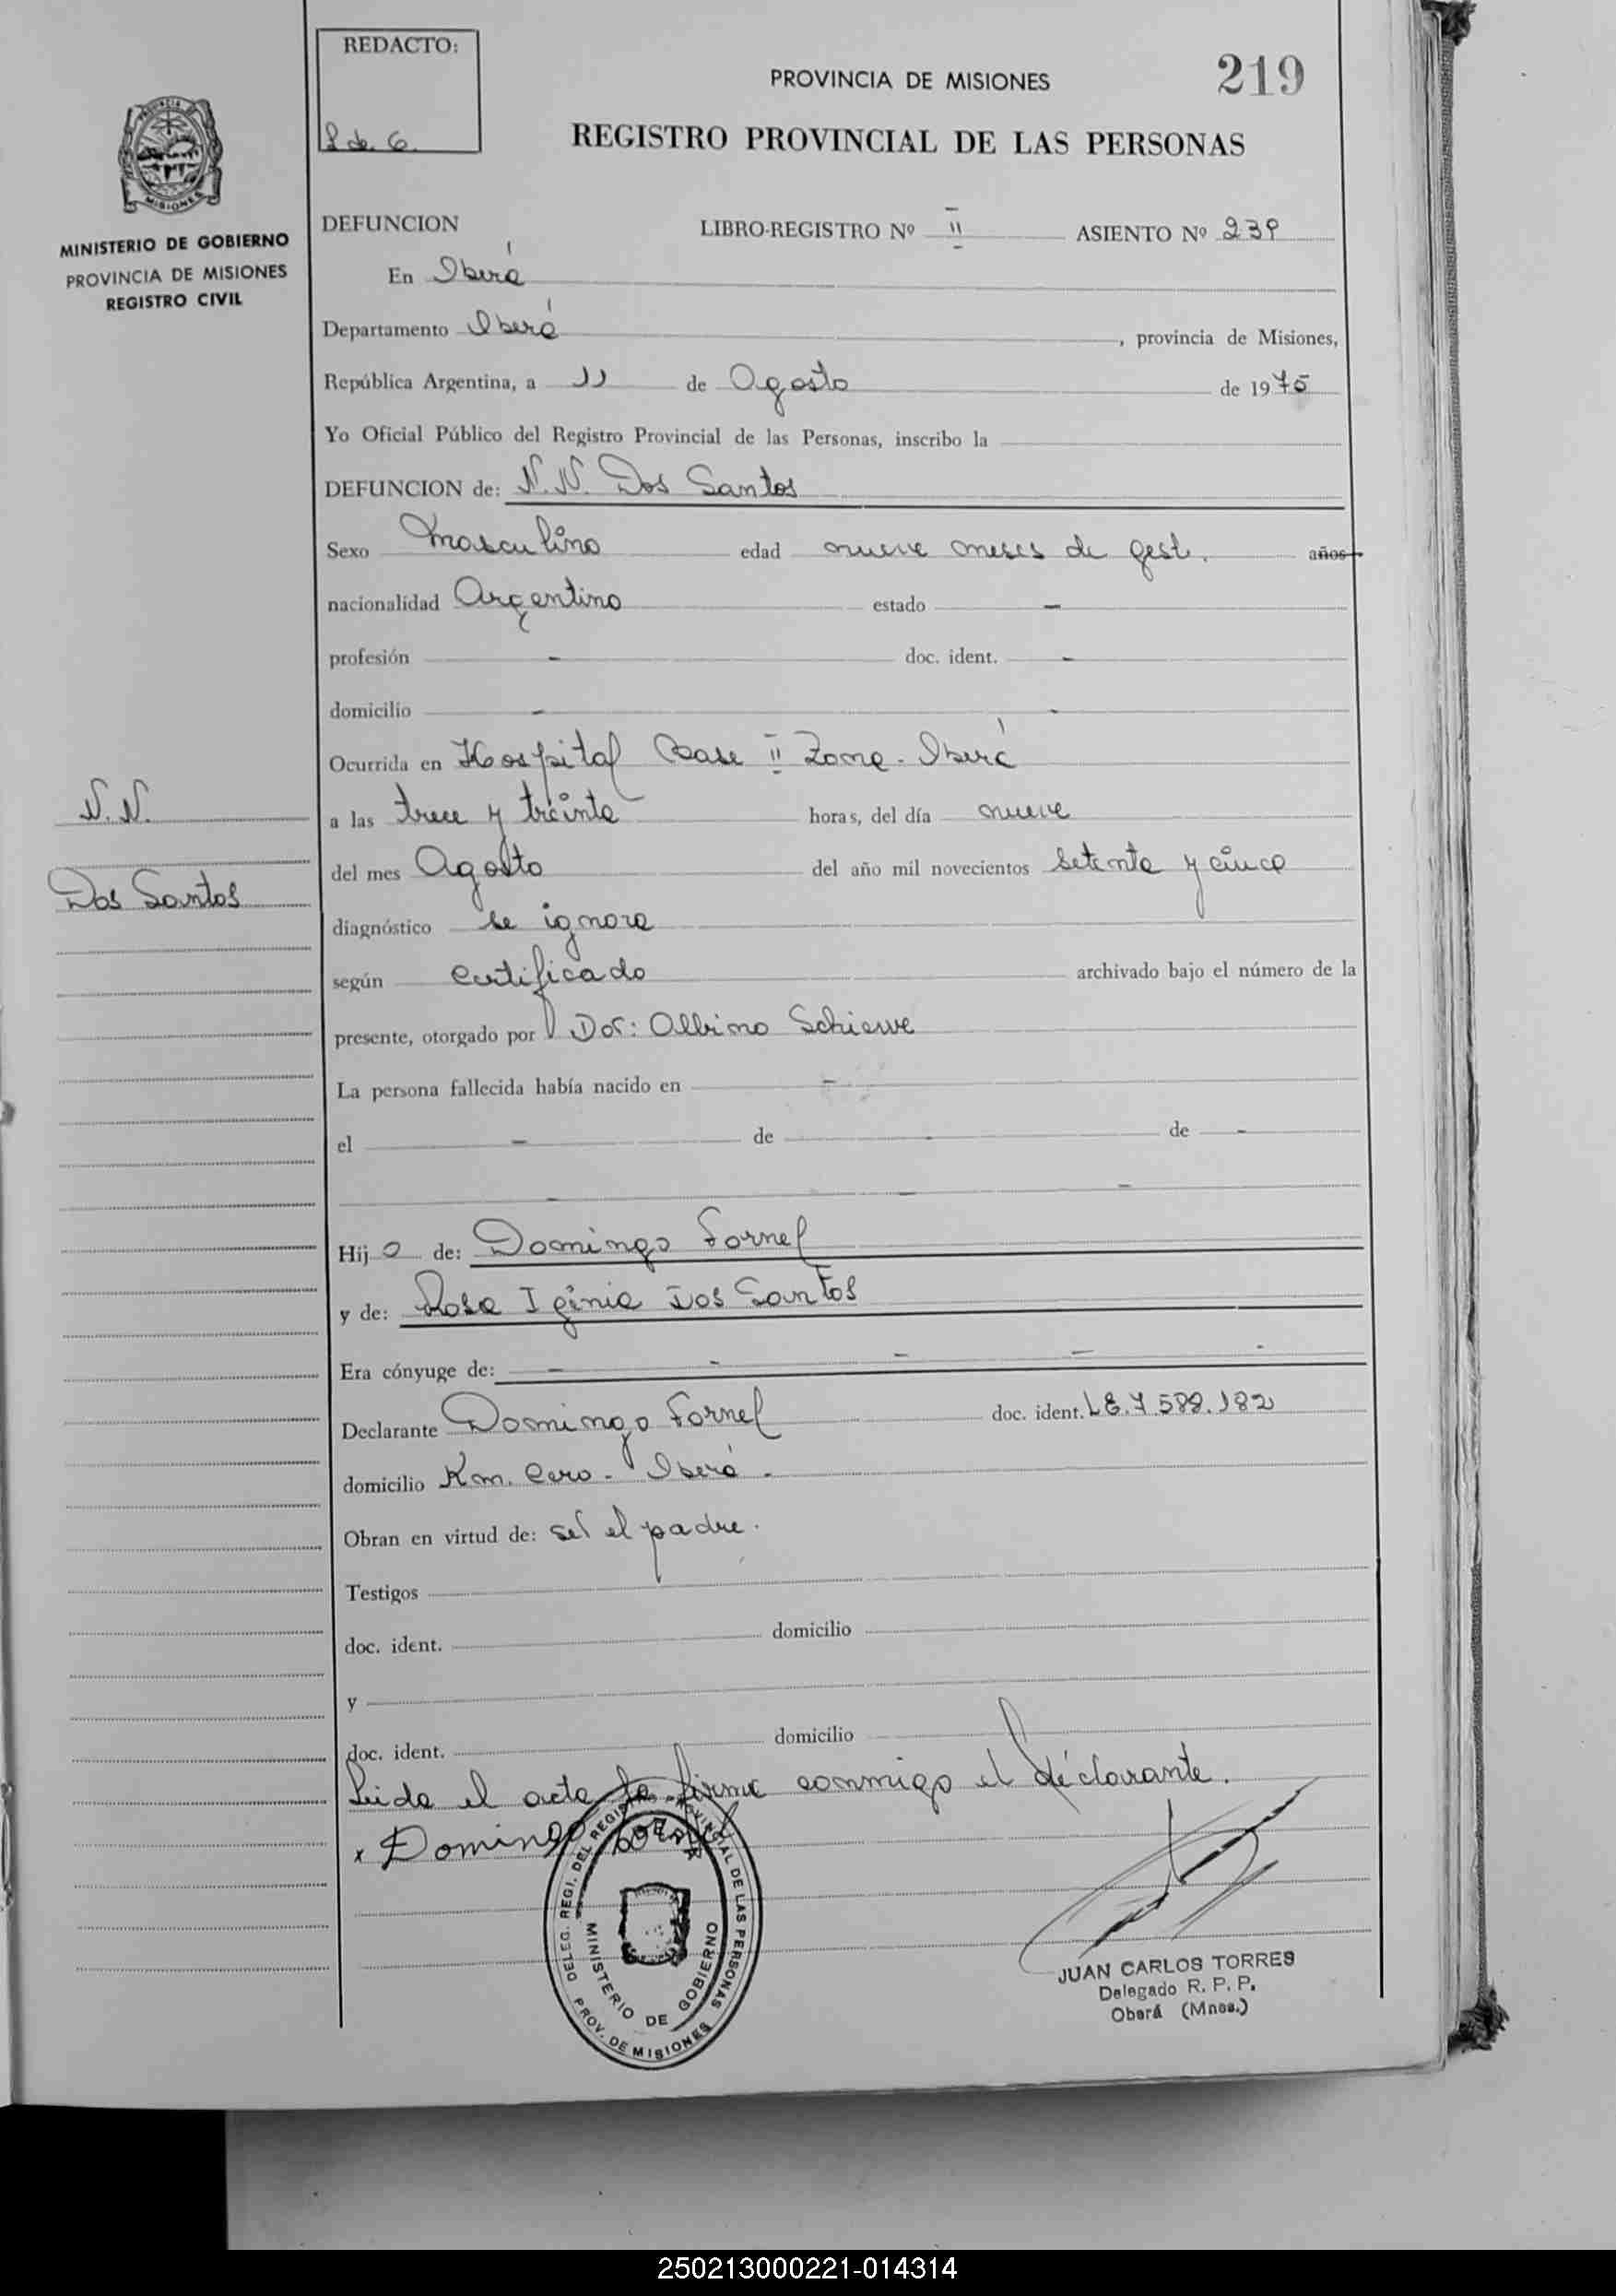 REDACTO:
219
PROVINCIA DE MISIONES
REGISTRO PROVINCIAL DE LAS PERSONAS
MISIONES
MINISTERIO DE GOBIERNO
PROVINCIA DE MISIONES
REGISTRO CIVIL
DEFUNCION LIBRO-REGISTRO Nº II ASIENTO Nº 239
En Oberá
Departamento Oberá, provincia de Misiones,
República Argentina, a 11 de Agosto de 1975
Yo Oficial Público del Registro Provincial de las Personas, inscribo la
DEFUNCION de: N.N. Dos Santos
Sexo Masculino edad nueve meses de gest. años
nacionalidad Argentino estado -
profesión - doc. ident. -
domicilio - -
Ocurrida en Hospital Base II Zona - Oberá
N.N.
a las trece y treinta horas, del día nueve
del mes Agosto del año mil novecientos setenta y cinco
Dos Santos
diagnóstico se ignora
según certificado archivado bajo el número de la
presente, otorgado por Dor: Albino Schierve
La persona fallecida había nacido en -
el - de - de -
- - -
Hijo de: Domingo Fornel
y de: Rosa Iginia Dos Santos
Era cónyuge de: - - - - -
Declarante Domingo Fornel doc. ident. L.E. 7.588.182
domicilio Km. Cero - Oberá -
Obran en virtud de: ser el padre.
Testigos
doc. ident. domicilio
y
doc. ident. domicilio
Leida el acta la firma conmigo el declarante.
x Domingo
DELEG. REGI. DEL REGISTRO PROVINCIAL DE LAS PERSONAS
OBERA
MINISTERIO DE GOBIERNO
PROV. DE MISIONES
JUAN CARLOS TORRES
Delegado R. P. P.
Oberá (Mnes.)
250213000221-014314